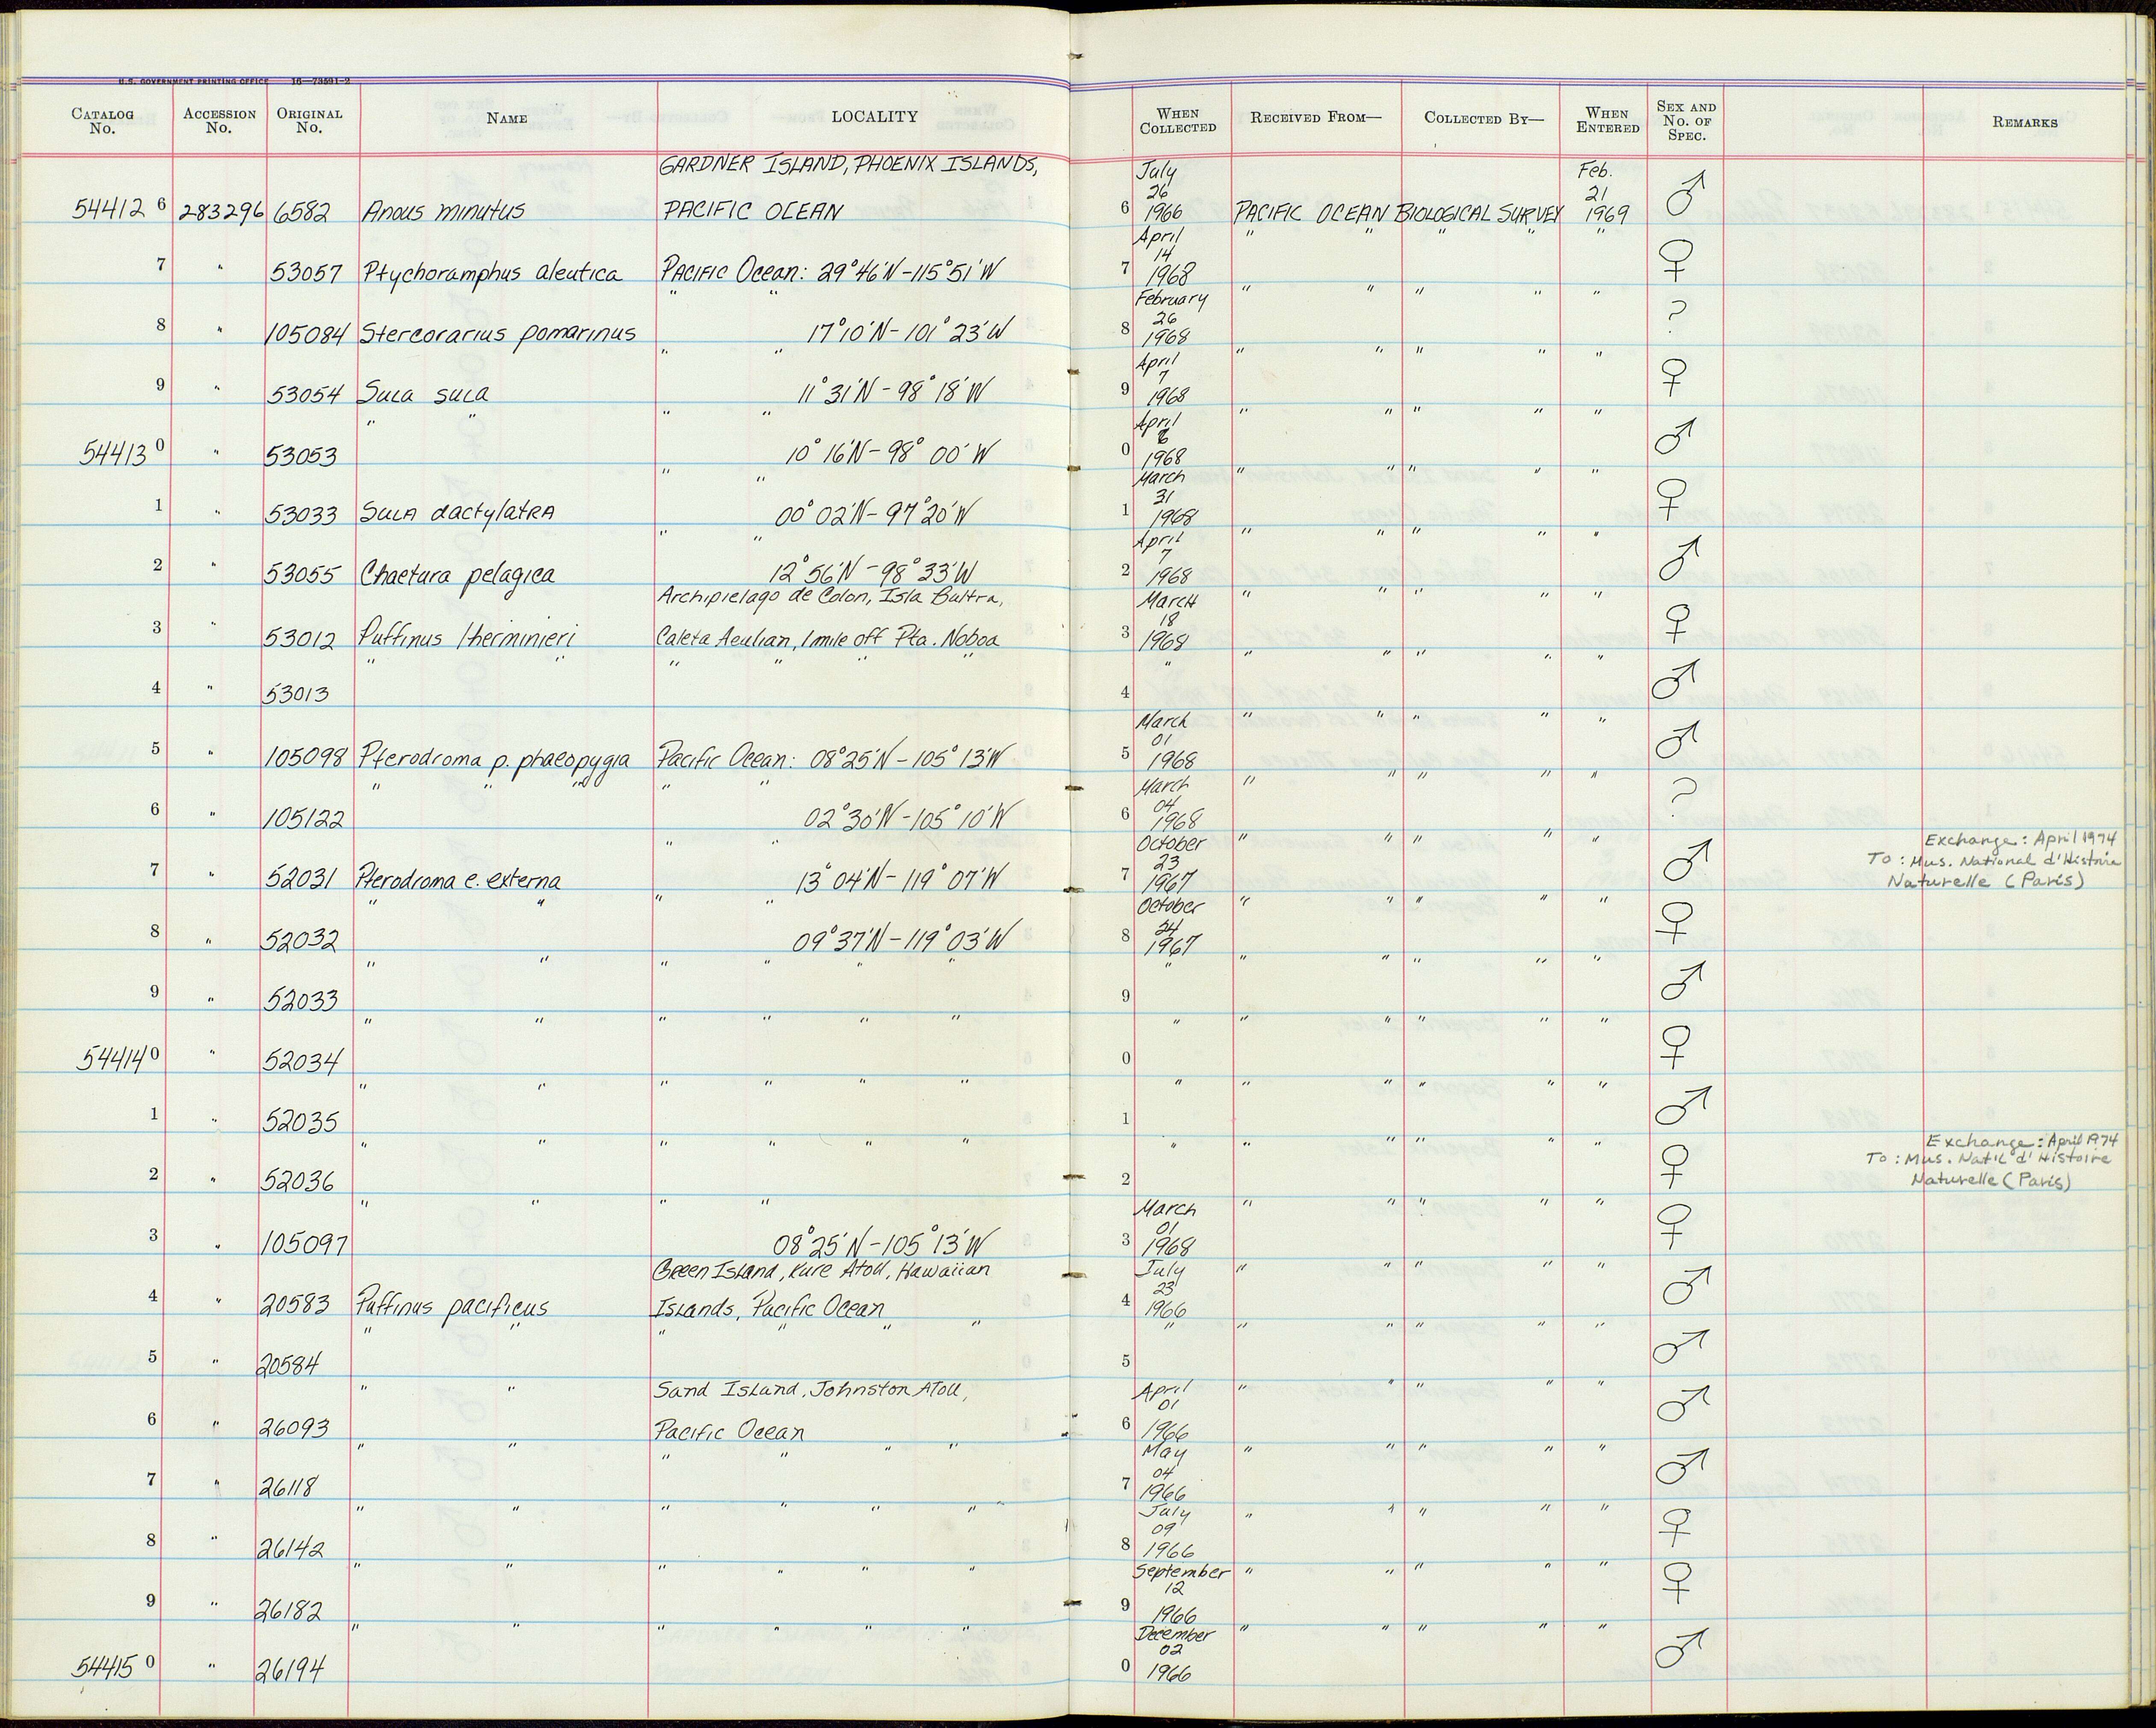 U.S. GOVERNMENT PRINTING OFFICE 16—73591-2
CATALOG No. ACCESSION No. ORIGINAL No. NAME LOCALITY WHEN COLLECTED RECEIVED FROM— COLLECTED BY— WHEN ENTERED SEX AND No. OF SPEC. REMARKS
GARDNER ISLAND, PHOENIX ISLANDS, July 26 Feb. 21
54412 6 283296 6582 Anous minutus PACIFIC OCEAN 6 1966 PACIFIC OCEAN BIOLOGICAL SURVEY 1969 ♂
7 " 53057 Ptychoramphus aleutica PACIFIC Ocean: 29°46'N-115°51'W 7 April 14 1968 " " " " " ♀
8 " 105084 Stercorarius pomarinus " " 17°10'N-101°23'W 8 February 26 1968 " " " " " ?
9 " 53054 Sula sula " " 11°31'N-98°18'W 9 April 7 1968 " " " " " ♀
54413 0 " 53053 " " " " 10°16'N-98°00'W 0 April 1968 " " " " " ♂
1 " 53033 SULA dactylatRA " " 00°02'N-97°20'W 1 March 31 1968 " " " " " ♀
2 " 53055 Chaetura pelagica " " 12°56'N-98°33'W 2 April 7 1968 " " " " " ♂
Archipielago de Colon, Isla Baltra,
3 " 53012 Puffinus lherminieri Caleta Aeulian, 1 mile off Pta. Noboa 3 MarcH 18 1968 " " " " " ♀
4 " 53013 " " " " " " 4 " " " " " " ♂
5 " 105098 Pterodroma p. phaeopygia Pacific Ocean: 08°25'N-105°13'W 5 March 01 1968 " " " " " ♂
6 " 105122 " " " " " 02°30'N-105°10'W 6 March 04 1968 " " " " " ?
Exchange: April 1974
To: Mus. National d'Histoire
Naturelle (Paris)
7 " 52031 Pterodroma e. externa " " 13°04'N-119°07'W 7 October 23 1967 " " " " " ♂
8 " 52032 " " " " 09°37'N-119°03'W 8 October 24 1967 " " " " " ♀
9 " 52033 " " " " " " 9 " " " " " " ♂
54414 0 " 52034 " " " " " " 0 " " " " " " ♀
1 " 52035 " " " " " " 1 " " " " " " ♂
Exchange: April 1974
To: Mus. Nat'l d'Histoire
Naturelle (Paris)
2 " 52036 " " " " " " 2 " " " " " " ♀
3 " 105097 " " " " 08°25'N-105°13'W 3 March 01 1968 " " " " " ♀
Green Island, Kure Atoll, Hawaiian
4 " 20583 Puffinus pacificus Islands, Pacific Ocean 4 July 23 1966 " " " " " ♂
5 " 20584 " " " " " " 5 " " " " " " ♂
Sand Island, Johnston Atoll,
6 " 26093 " " Pacific Ocean 6 April 01 1966 " " " " " ♂
7 " 26118 " " " " " " 7 May 04 1966 " " " " " ♂
8 " 26142 " " " " " " 8 July 09 1966 " " " " " ♀
9 " 26182 " " " " " " 9 September 12 1966 " " " " " ♀
54415 0 " 26194 " " " " " " 0 December 02 1966 " " " " " ♂